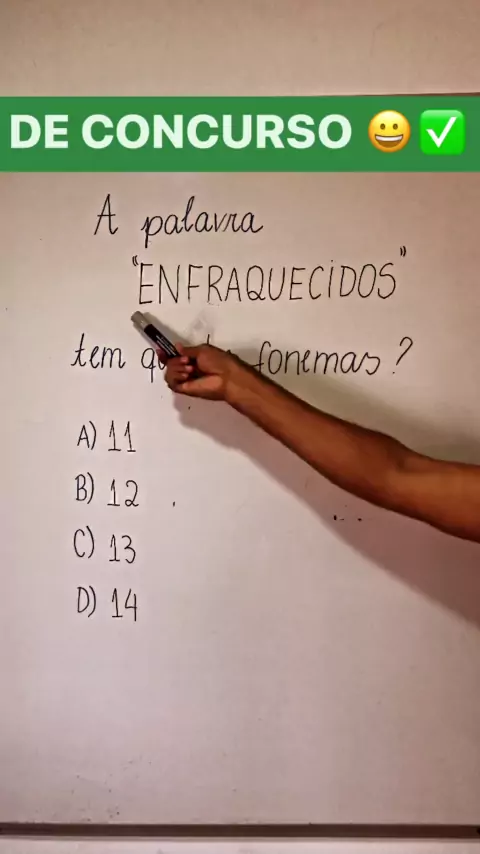 DE CONCURSO 😀 ✅
A palavra
"ENFRAQUECIDOS"
tem fonemas?
A) 11
B) 12
C) 13
D) 14